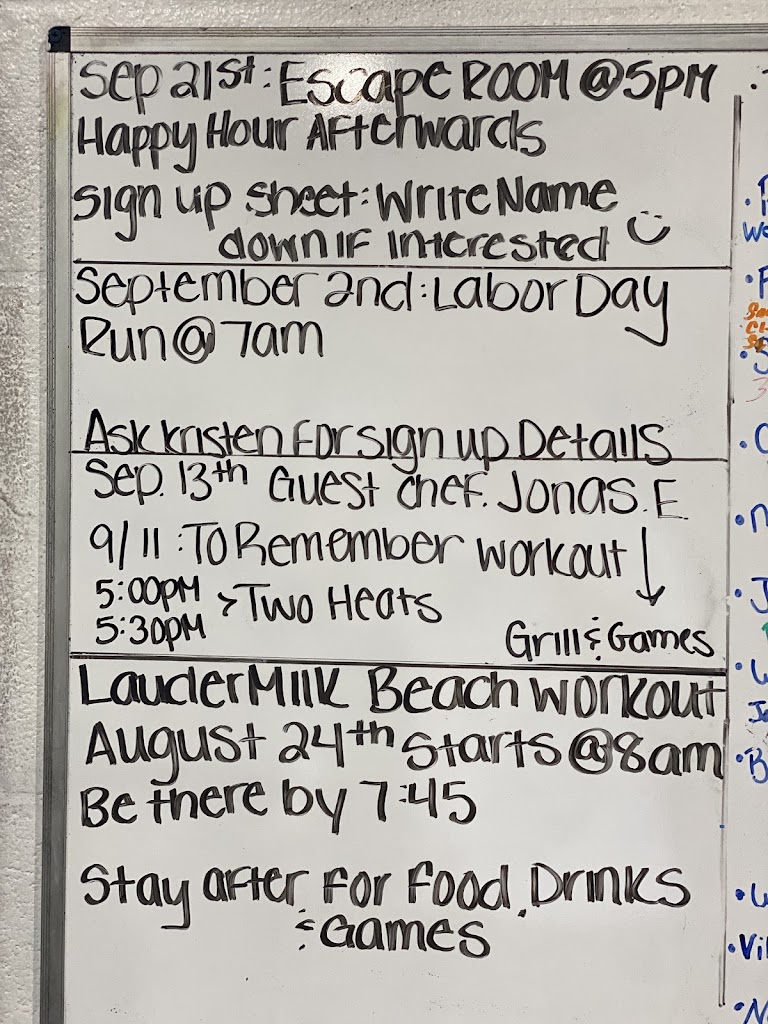 Sep 21st: Escape Room @ 5pm
Happy Hour Afterwards
Sign up sheet: Write Name
down if interested
September 2nd: Labor Day
Run @ 7am
Ask Kristen for sign up Details
Sep. 13th Guest chef. Jonas. E
9/11: To Remember workout
5:00pm > Two Heats
5:30pm
Grill & Games
Laudermilk Beach workout
August 24th Starts @ 8am
Be there by 7:45
Stay after for food, Drinks
& Games